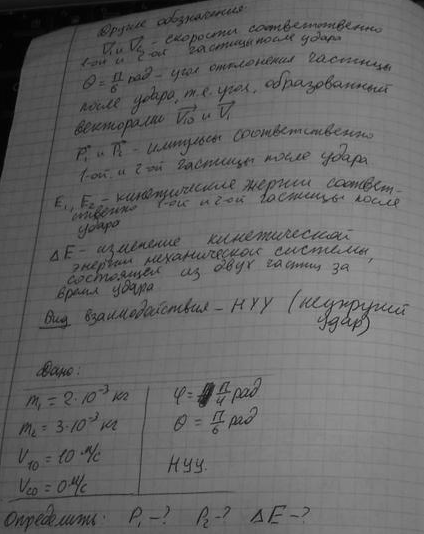 Другие обозначения:
V⃗₁ и V⃗₂ - скорости соответственно
1-ой и 2-ой частицы после удара
θ = π/6 рад - угол отклонения частицы
после удара, т.е. угол, образованный
векторами V⃗₁₀ и V⃗₁
P⃗₁ и P⃗₂ - импульсы соответственно
1-ой и 2-ой частицы после удара
E₁, E₂ - кинетические энергии соответ-
ственно 1-ой и 2-ой частицы после
удара
ΔE - изменение кинетической
энергии механической системы,
состоящей из двух частиц за
время удара
Вид взаимодействия - НУУ (неупругий
удар)
Дано:
m₁ = 2·10⁻³ кг
φ = π/4 рад
m₂ = 3·10⁻³ кг
θ = π/6 рад
V₁₀ = 10 м/с
НУУ.
V₂₀ = 0 м/с
Определить: P₁ - ? P₂ - ? ΔE - ?